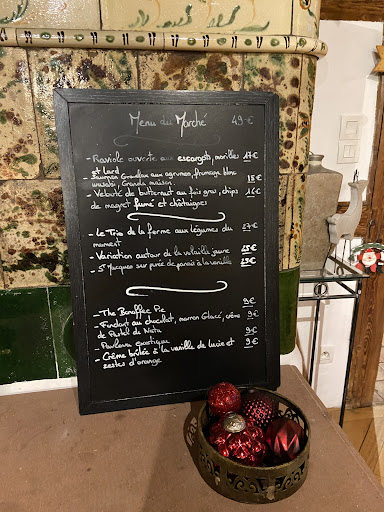 Menu du Marché 49€
- Raviole ouverte aux escargots, morilles et lard 17€
- Saumon Gravlax aux agrumes, fromage blanc wasabi, Granola maison. 15€
- Velouté de butternut au foie gras, chips 16€
de magret fumé et châtaignes
- Le Trio de la ferme aux légumes du 27€
moment
- Variation autour de la volaille jaune 25€
- St Jacques sur purée de panais à la vanille 29€
- The Banoffee Pie 9€
- Fondant au chocolat, marron Glacé, crème 9€
de Pastel de Nata 9€
Pavlova exotique
- Crème brûlée à la vanille de et 9€
zestes d'orange